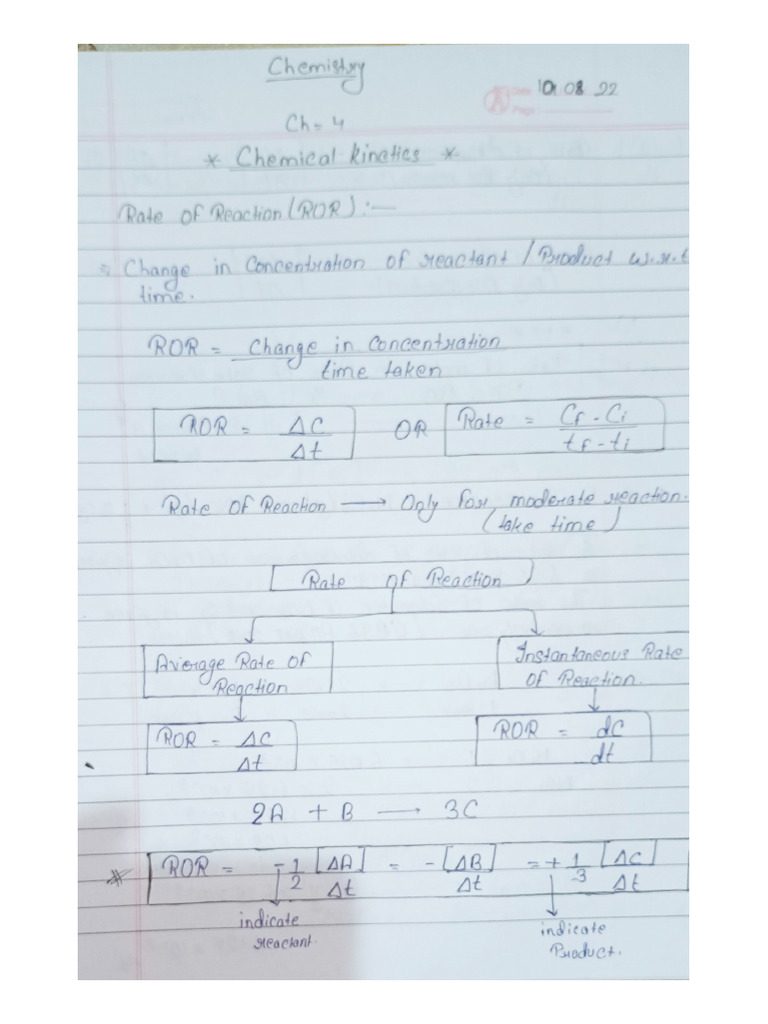 Chemistry
Date 10 08 22
Page
Ch = 4
* Chemical kinetics *
Rate of Reaction (ROR) :—
= Change in Concentration of reactant / Product w.r.t
time.
ROR = Change in Concentration
time taken
ROR = ΔC / Δt OR Rate = Cf - Ci / tf - ti
Rate of Reaction → Only for moderate reaction.
(take time)
Rate of Reaction
Average Rate of Reaction
Instantaneous Rate of Reaction.
ROR = ΔC / Δt
ROR = dC / dt
2A + B → 3C
* ROR = - 1/2 [ΔA] / Δt = - [ΔB] / Δt = + 1/3 [ΔC] / Δt
indicate reactant.
indicate Product.